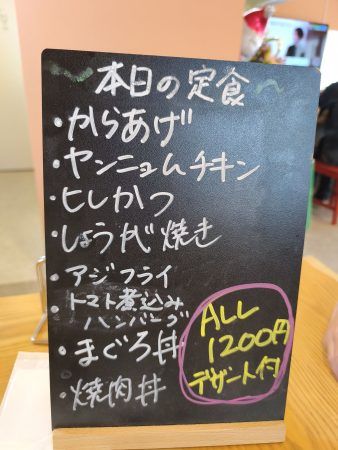 本日の定食
・からあげ
・ヤンニョムチキン
・ヒレかつ
・しょうが焼き
・アジフライ
・トマト煮込み
ハンバーグ
・まぐろ丼
・焼肉丼
ALL
1200円
デザート付